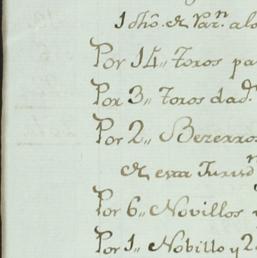 1 dho. & Parn. alo
Por 14,, Toros pa
Por 3,, Toros dad.
Por 2,, Bezerros
& essa Jurisdn
Por 6,, Novillos
Por 1,, Nobillo y 2